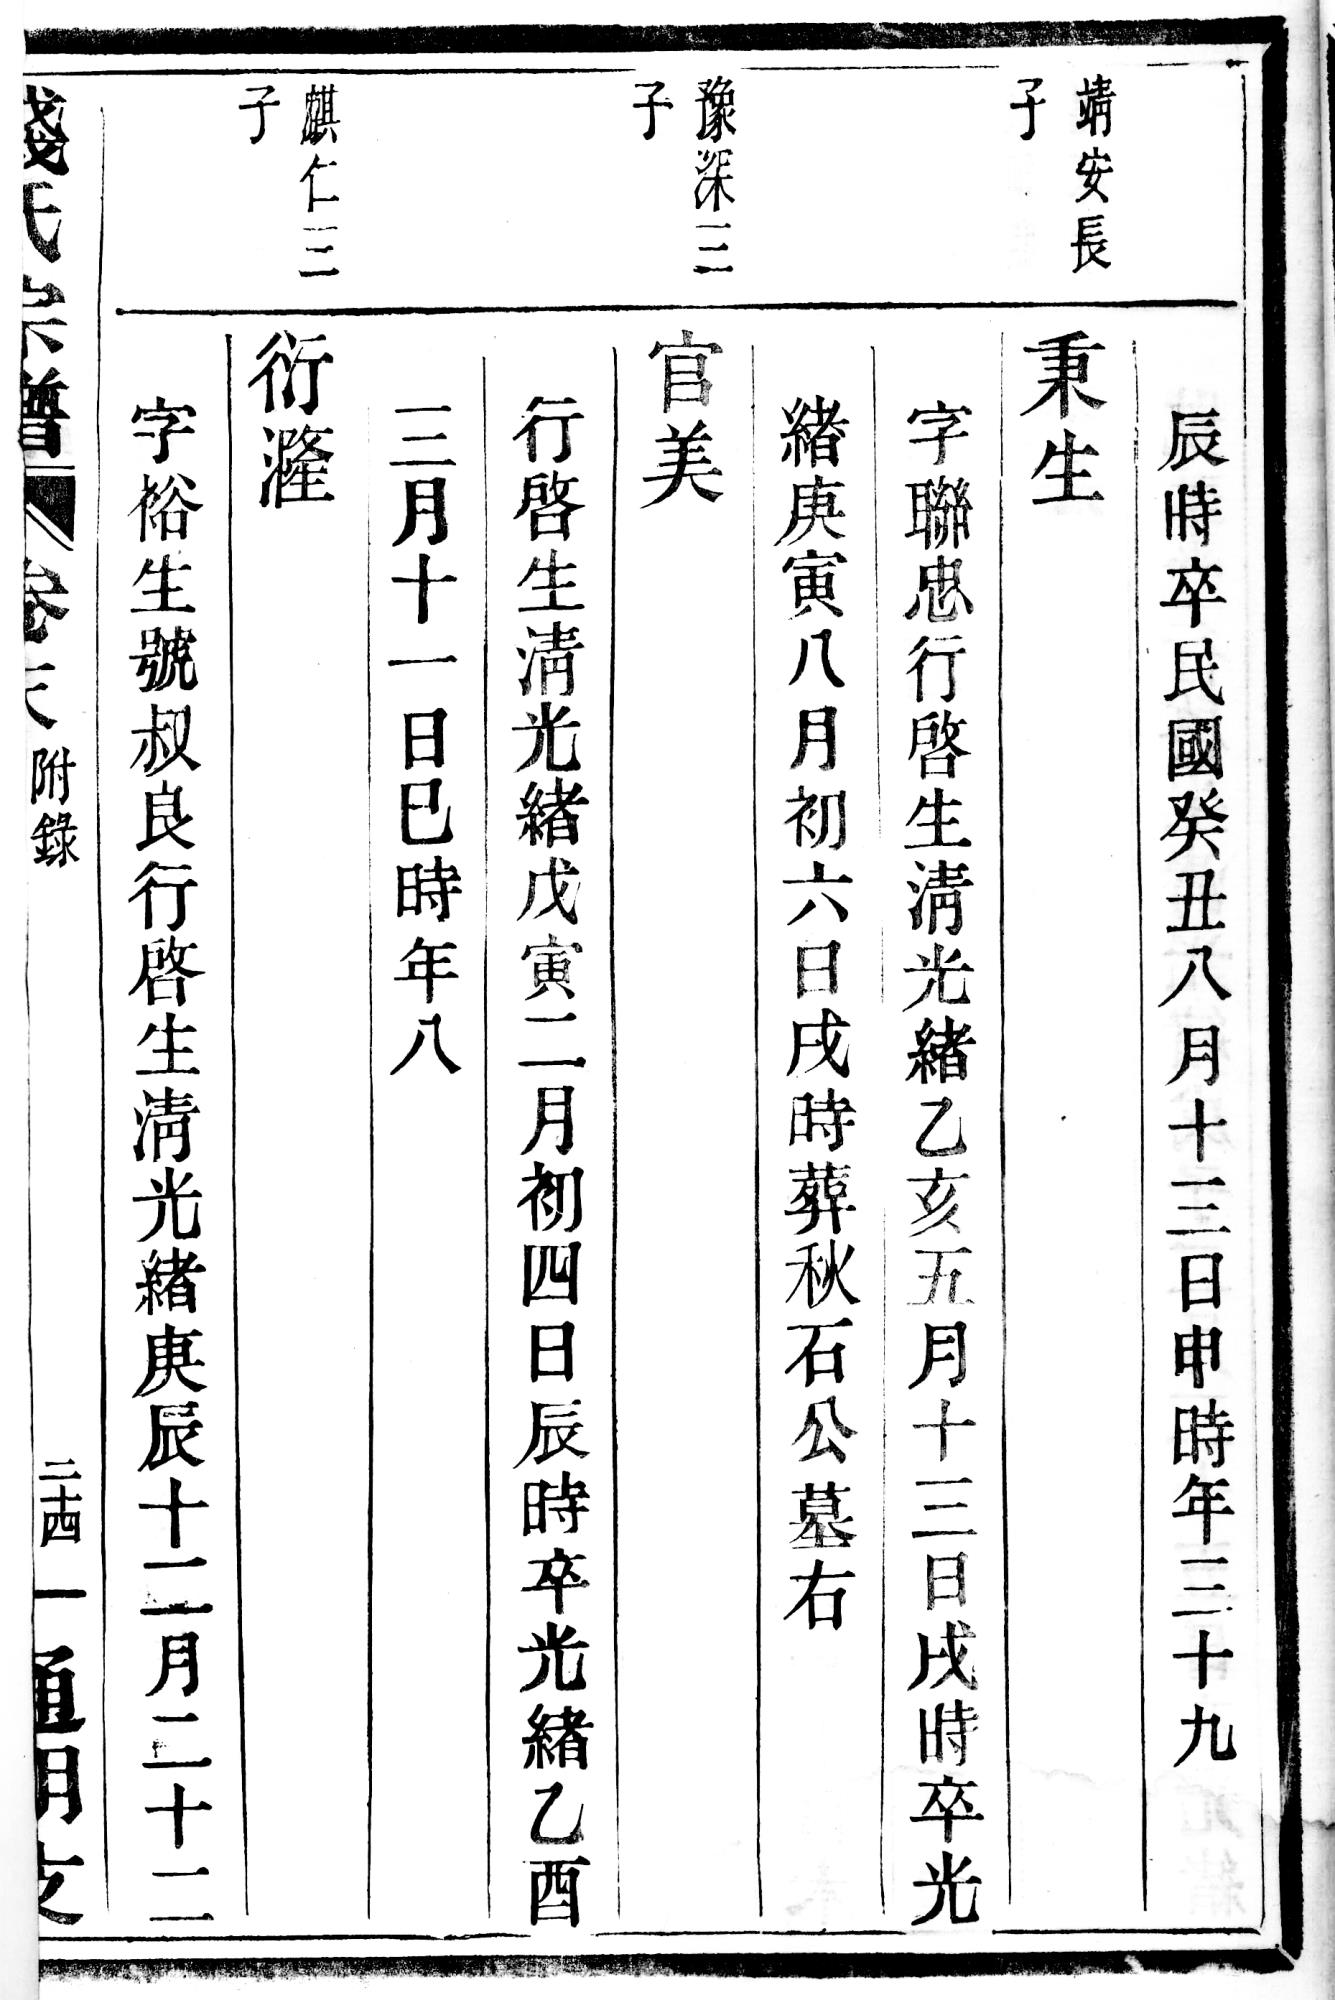 辰時卒民國癸丑八月十三日申時年三十九
靖安長
子
秉生
字聯忠行啓生清光緒乙亥五月十三日戌時卒光
緒庚寅八月初六日戌時葬秋石公墓右
豫深三
子
官美
行啓生清光緒戊寅二月初四日辰時卒光緒乙酉
三月十一日巳時年八
麒仁三
子
衍漋
字裕生號叔良行啓生清光緒庚辰十二月二十二
錢氏宗譜
卷
附錄
二十四
通明支